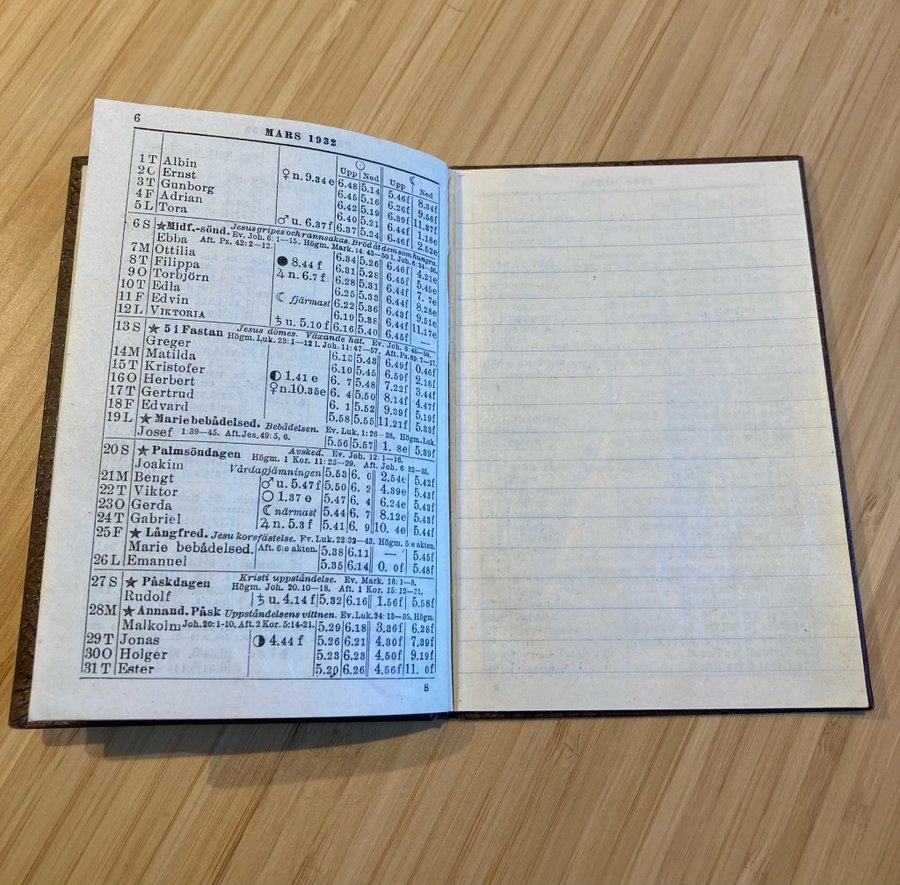 6
MARS 1932
Upp Ned Upp Ned
1 T Albin ♀ n. 9.34 e 6.48 5.14 5.46f 8.34f
2 O Ernst 6.45 5.16 6.26f 9.56f
3 T Gunborg 6.42 5.19 6.39f 11.37f
4 F Adrian 6.40 5.21 6.44f 1.18e
5 L Tora ♂ u. 6.37 f 6.37 5.24 6.46f 2.52e
6 S ★ Midf.-sönd. Jesus gripes och rannsakas. Bröd åt dem som hungra.
Ev. Joh. 6:1—15. Högm. Mark. 14:43—50
Ebba Aft. Ps. 42:2—12. 6.34 5.26 6.46f 4.21e
7 M Ottilia ● 8.44 f 6.31 5.28 6.45f 5.45e
8 T Filippa ♃ n. 6.7 f 6.28 5.31 6.44f 7. 7e
9 O Torbjörn 6.25 5.33 6.44f 8.28e
10 T Edla ☾ fjärmast 6.22 5.36 6.43f 9.51e
11 F Edvin 6.19 5.38 6.44f 11.17e
12 L VIKTORIA ♄ u. 5.10 f 6.16 5.40 6.45f —
13 S ★ 5 i Fastan Jesus dömes. Växande hat. Ev. Joh. 8:46—59.
Greger Högm. Luk. 23:1—12 l. Joh. 11:47—57. Aft. Ps. 69:7—17.
6.13 5.43 6.49f 0.46f
14 M Matilda 6.10 5.45 6.59f 2.18f
15 T Kristofer ◐ 1.41 e 6. 7 5.48 7.22f 3.44f
16 O Herbert ♀ n. 10.35e 6. 4 5.50 8.14f 4.47f
17 T Gertrud 6. 1 5.52 9.39f 5.19f
18 F Edvard 5.58 5.55 11.21f 5.33f
19 L ★ Marie bebådelsed. Bebådelsen. Ev. Luk. 1:26—38. Högm. Luk.
Josef 1:39—45. Aft. Jes. 49:5, 6. 5.56 5.57 1. 8e 5.39f
20 S ★ Palmsöndagen Avsked. Ev. Joh. 12:1—16.
Högm. 1 Kor. 11:23—29. Aft. Joh. 6:32—35.
Joakim Vårdagjämningen 5.53 6. 0 2.54e 5.42f
21 M Bengt ♂ u. 5.47 f 5.50 6. 2 4.39e 5.43f
22 T Viktor ○ 1.37 e 5.47 6. 4 6.24e 5.43f
23 O Gerda ☾ närmast 5.44 6. 7 8.12e 5.43f
24 T Gabriel ♃ n. 5.3 f 5.41 6. 9 10. 4e 5.44f
25 F ★ Långfred. Jesu korsfästelse. Ev. Luk. 23:32—43. Högm. 5:e akten.
Marie bebådelsed. Aft. 6:e akten. 5.38 6.11 — 5.45f
26 L Emanuel 5.35 6.14 0. 0f 5.48f
27 S ★ Påskdagen Kristi uppståndelse. Ev. Mark. 16:1—8.
Högm. Joh. 20.10—18. Aft. 1 Kor. 15:12—21.
Rudolf ♄ u. 4.14 f 5.32 6.16 1.56f 5.58f
28 M ★ Annand. Påsk Uppståndelsens vittnen. Ev. Luk. 24:13—35. Högm.
Malkolm Joh. 20:1-10. Aft. 2 Kor. 5:14-21. 5.29 6.18 3.36f 6.28f
29 T Jonas ◑ 4.44 f 5.26 6.21 4.30f 7.39f
30 O Holger 5.23 6.23 4.50f 9.19f
31 T Ester 5.20 6.26 4.56f 11. 0f
8